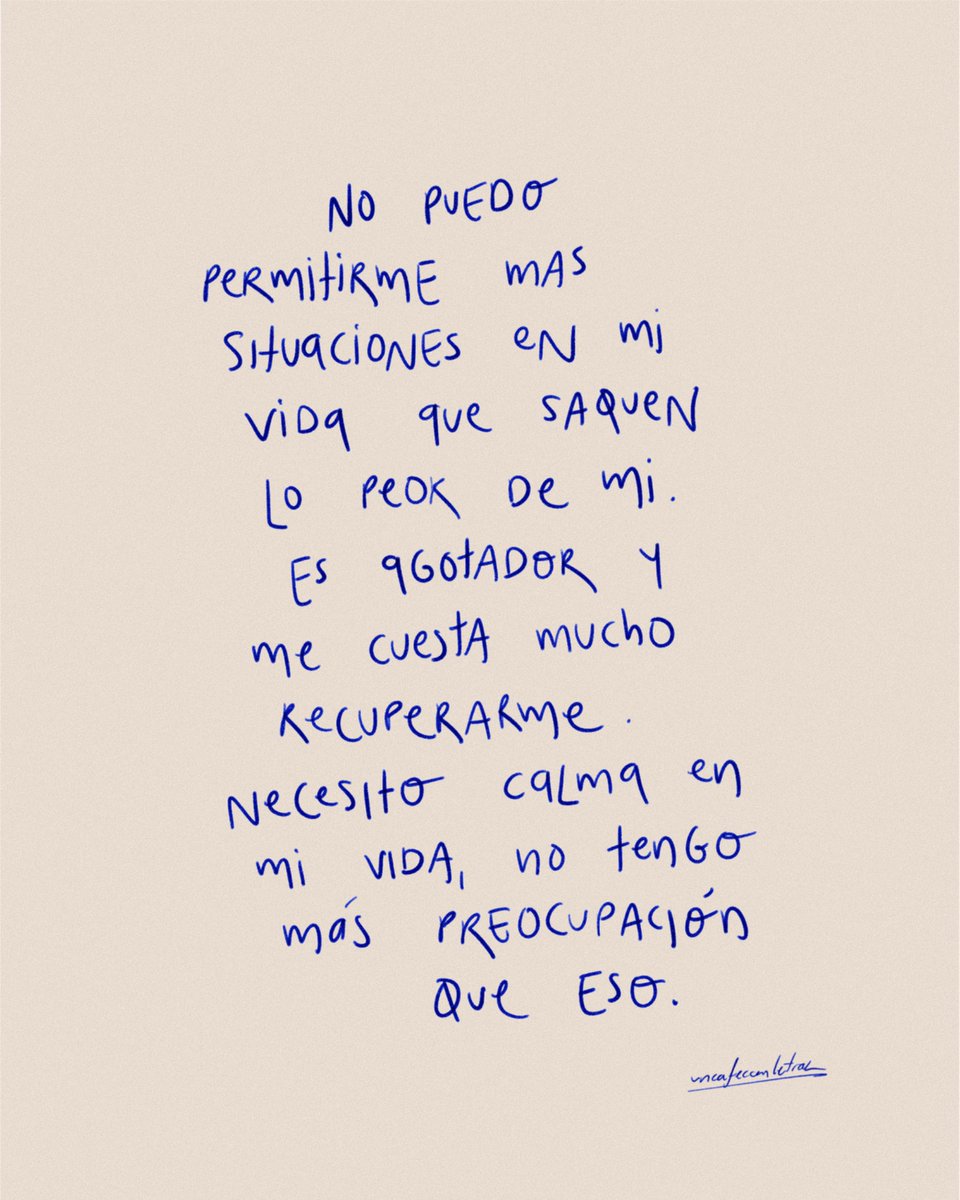 NO PUEDO
PERMITIRME MAS
SITUACIONES EN MI
VIDA QUE SAQUEN
LO PEOR DE MI.
ES AGOTADOR Y
ME CUESTA MUCHO
RECUPERARME.
NECESITO CALMA EN
MI VIDA, NO TENGO
MÁS PREOCUPACIÓN
QUE ESO.
uncafeconletras